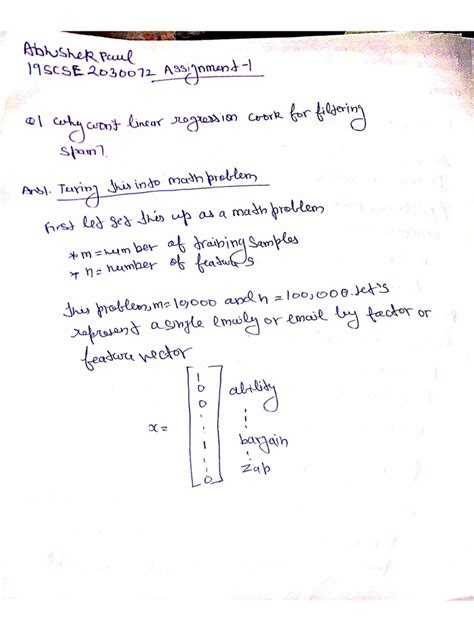 Abhishek Paul
19SCSE2030072 Assignment-1
Q1 Why won't linear regression work for filtering
spam?
Ans1. Turing this into math problem
First let set this up as a math problem
* m = number of training samples
* n = number of features
This problem, m = 10,000 and n = 100,000. Let's
represent a single emaily or email by factor or
feature vector
x =
1
0 ability
0
1 bargain
0 zap